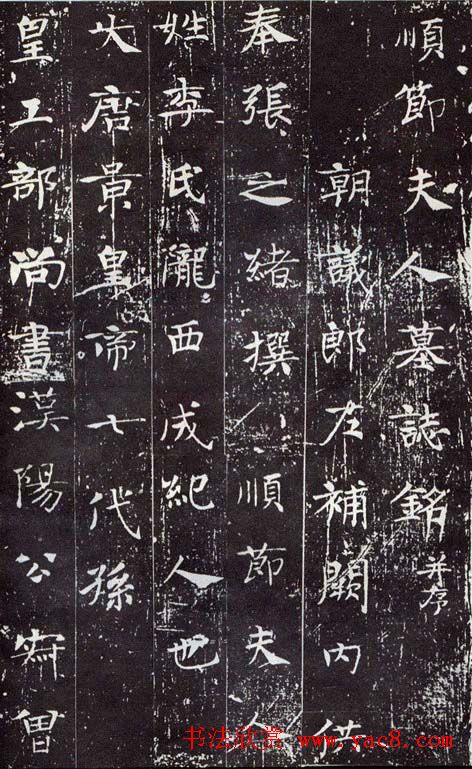 順節夫人墓誌銘并序
朝議郎左補闕內供
奉張之緒撰順節夫人
姓李氏瀧西成紀人也
大唐景皇帝七代孫
皇工部尚書漢陽公曾
书法欣赏 www.yac8.com